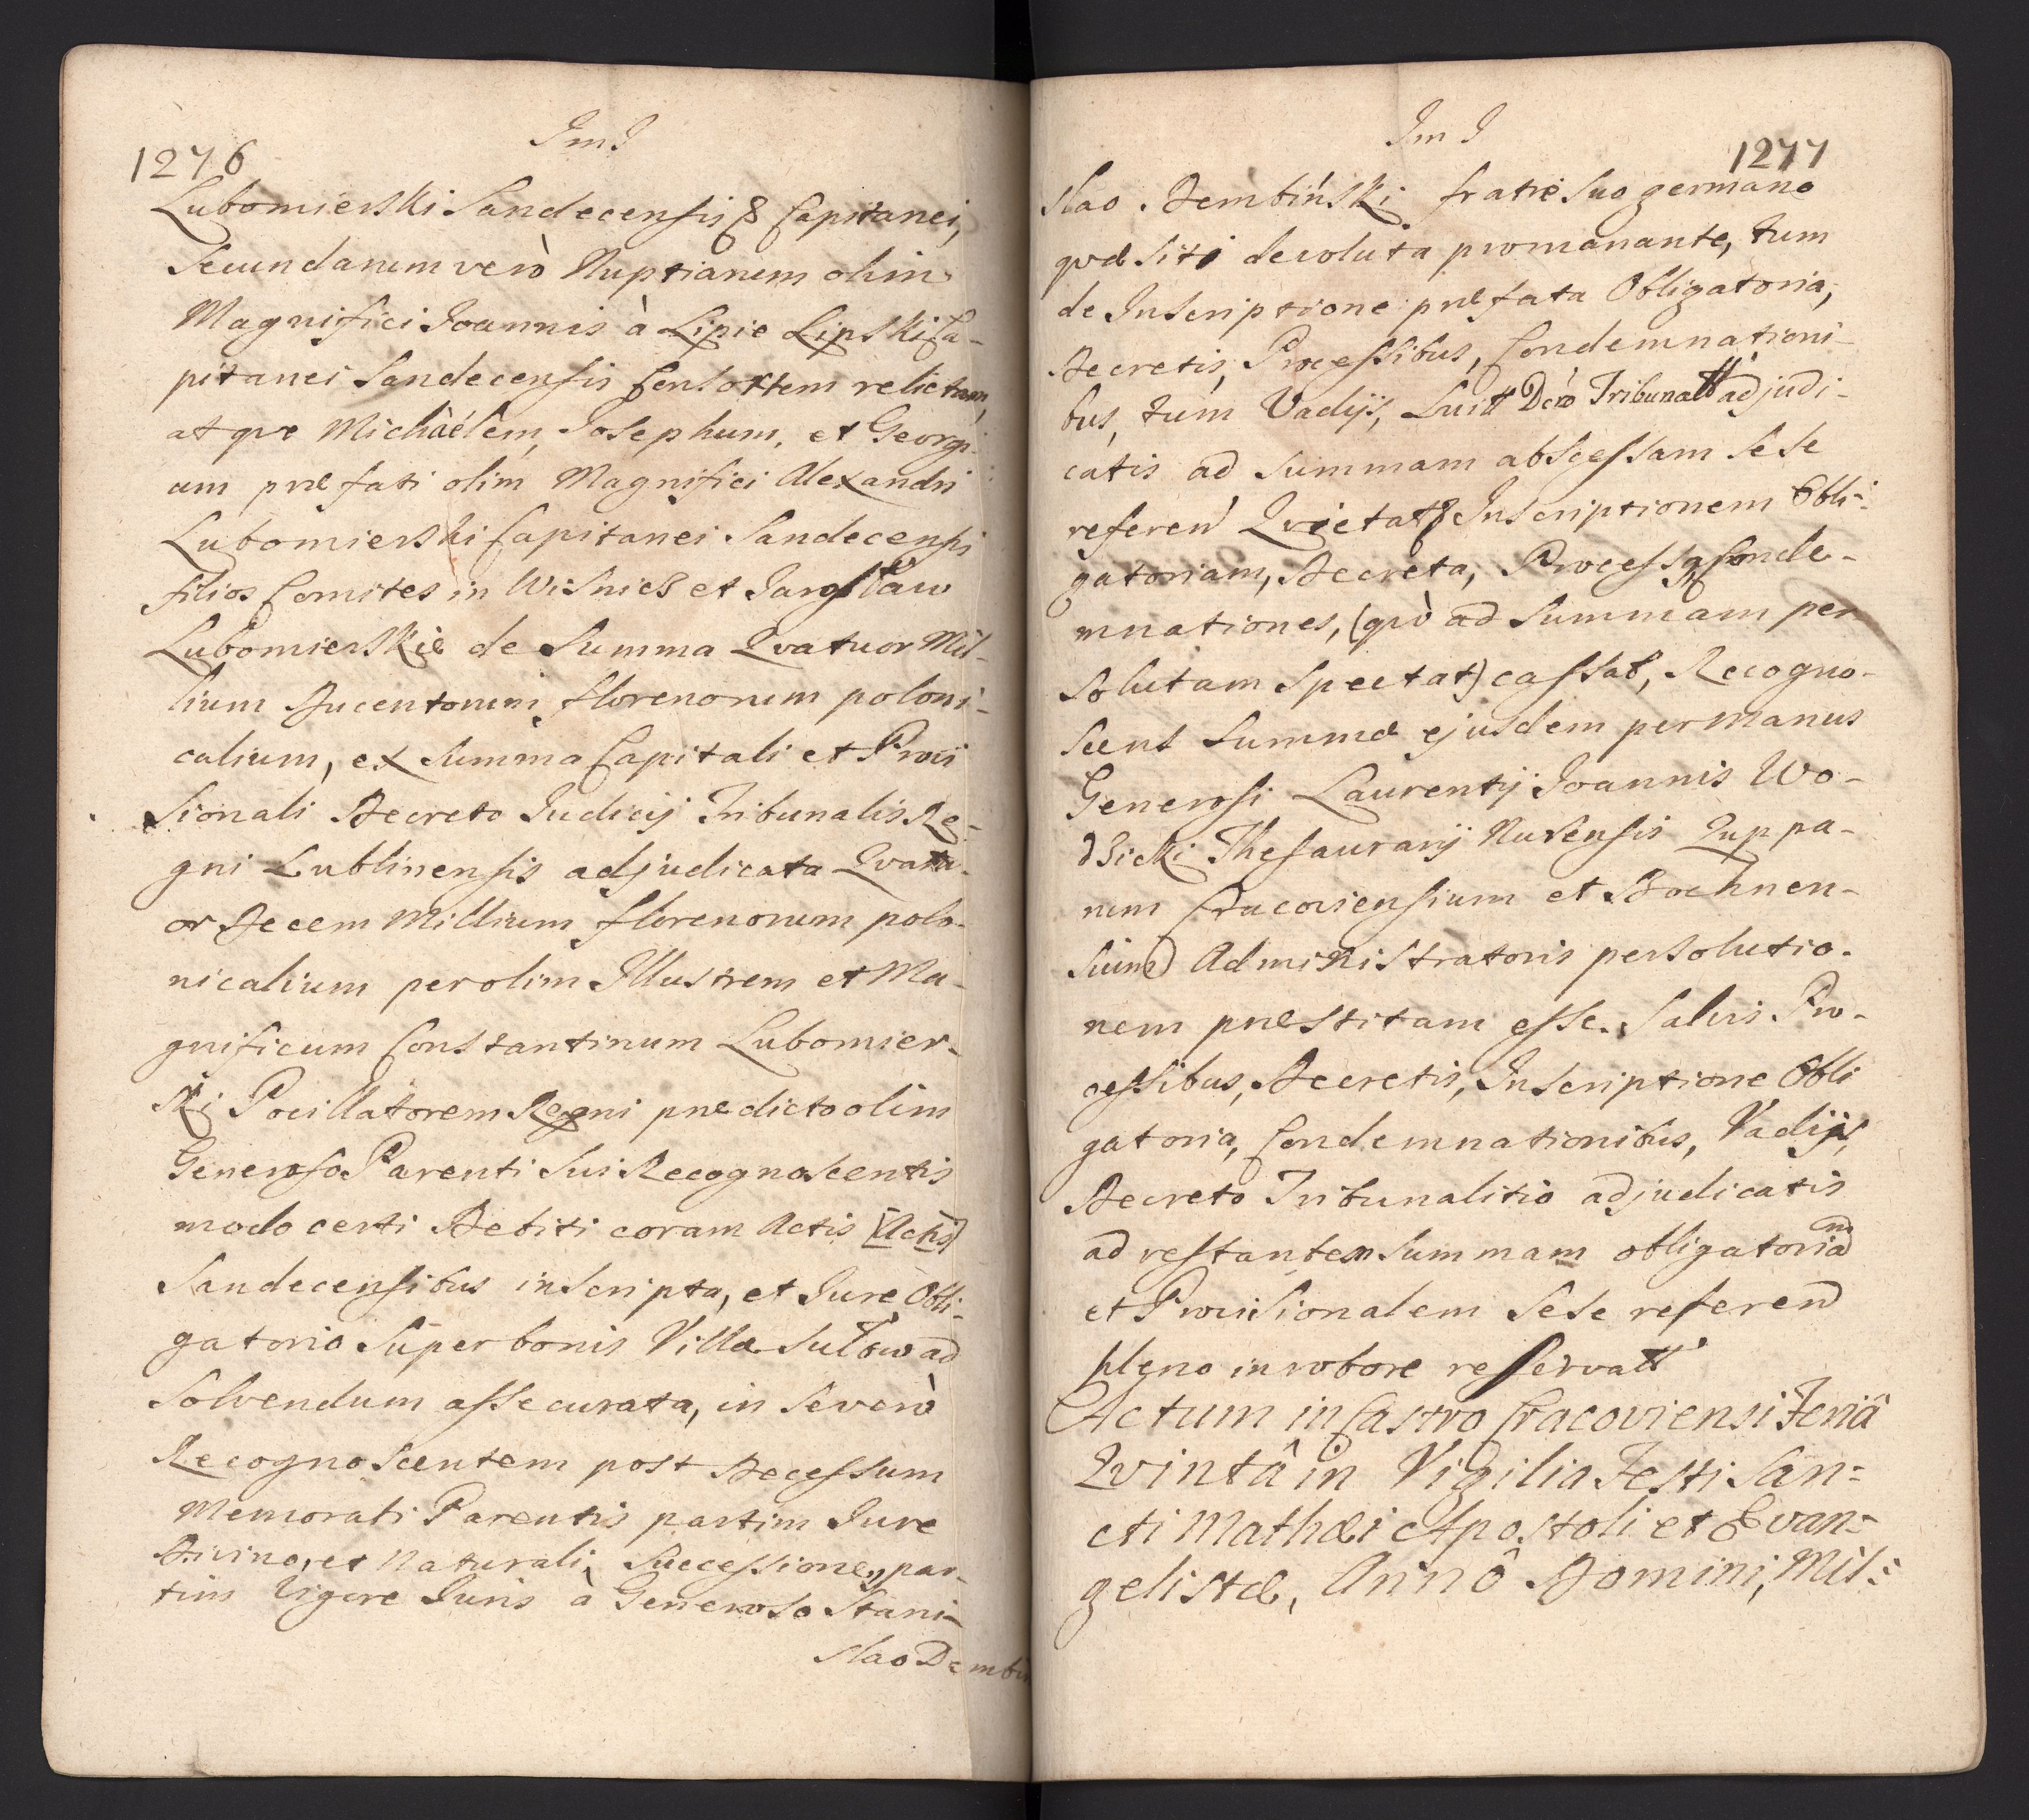 1276
ImI
Lubomierski Sandecensis & Capitanei,
Secundarum verò Nuptiarum olim
Magnifici Joannis à Lipie Lipski Ca-
pitanei Sandecensis Consortem relictam,
atqve Michàélem, Josephum, et Georgi-
um præfati olim Magnifici Alexandri
Lubomierski Capitanei Sandecensis
filios Comites in Wisnicz et Jarosław
Lubomierskie de Summa Qvatuor Mil-
lium Ducentorum florenorum poloni-
calium, ex Summa Capitali et Provi
sionali Decreto Judicij Tribunalis Re-
gni Lublinensis adjudicata Qvatu-
or Decem Millium florenorum polo-
nicalium per olim Illustrem et Ma-
gnificum Constantinum Lubomier-
ski Pocillatorem Regni prædicto olim
Generoso Parenti sui Recognoscentis
modo certi Debiti coram Actis (Actis)
Sandecensibus inscripta, et Jure Obli-
gatorio super bonis Villæ Sułow ad
Solvendum assecurata, in se verò
Recognoscentem post Decessum
Memorati Parentis partim Jure
Divino, et Naturali, Successione, par-
tim Vigore Juris à Generoso Stani-
slao Dembin
Im I
1277
slao Dembiński fratre suo germano
qvæ siti devoluta promanante, tum
de Inscriptione præfata Obligatoria,
Decretis, Processibus, Condemnationi-
bus, tum Vadijs, Luitt Dcro Tribunaltt adjudi-
catis ad Summam abscessam sese
referen Qvietat & Inscriptionem Obli-
gatoriam, Decreta, Processq, Conde-
mnationes, (qvò ad Summam per
solutam spectat) cassat, Recogno-
scens Summæ ejusdem per manus
Generosi Laurentij Joannis Wo-
dzicki Thesaurarij Nurensis Zuppa-
rum Cracoviensium et Bochnen-
sium Administratoris persolutio-
nem præstitam esse. Salvis Pro-
cessibus, Decretis, Inscriptione Obli
gatoria, Condemnationibus, Vadijs,
Decreto Tribunalitio adjudicatis
ad restantem Summam obligatoriam
et Provisionalem sese referen
pleno in robore reservatt
Actum in Castro Cracoviensi Feriâ
Qvintâ in Vigilia Festi San=
cti Mathæi Apostoli et Evan=
gelistæ, Annô Domini, Mil=